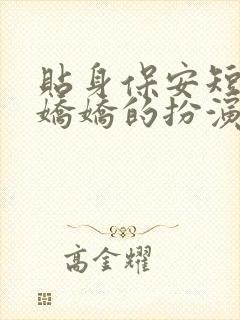 貼身保安短
嬌嬌的扮演
高金耀